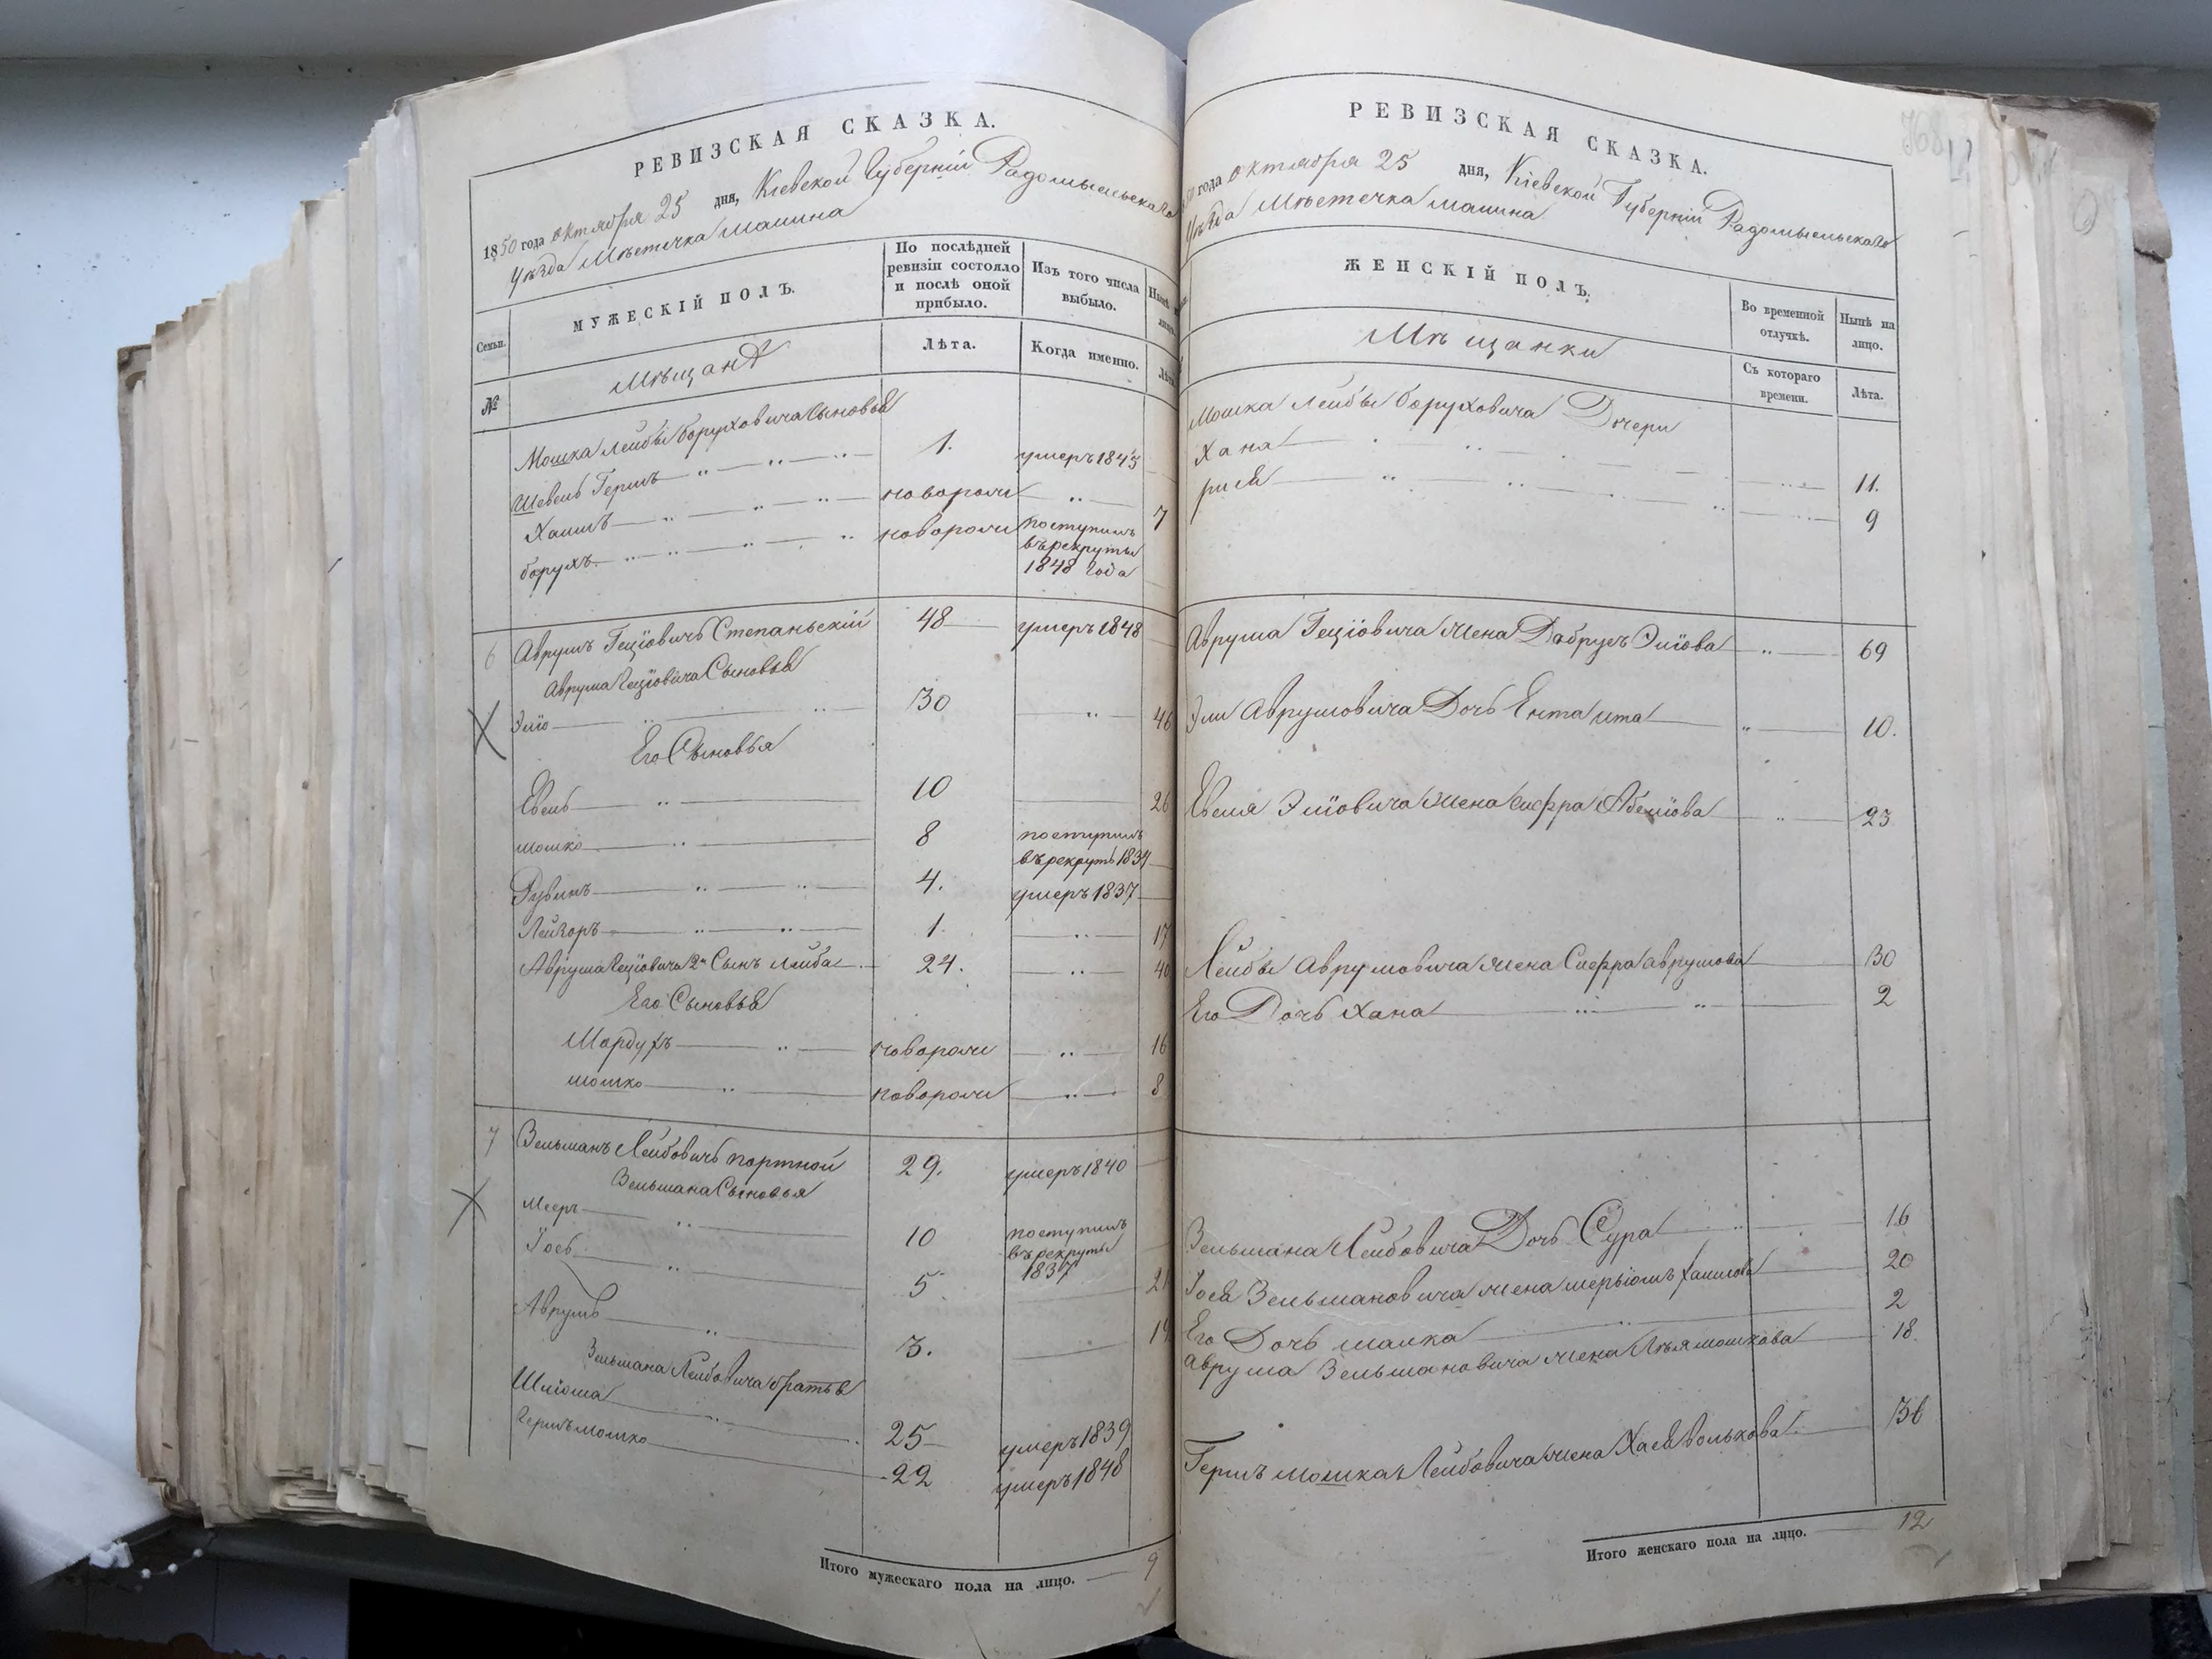 РЕВИЗСКАЯ СКАЗКА.
1850 года октября 25 дня, Кіевской Губерніи Радомысльскаго
Уѣзда Мѣстечка Малина
Семьи.
МУЖЕСКІЙ ПОЛЪ.
По послѣдней
ревизіи состояло
и послѣ оной
прибыло.
Изъ того числа
выбыло.
№
Мѣщанъ
Лѣта.
Когда именно.
Мошка Лейбы Боруховича Сыновья
Шевель Гершъ 1. умеръ 1845
Хаимъ новорож 7
борухъ новорож поступилъ
въ рекруты
1848 года
6 Аврумъ Гецiовичъ Степаньскій 48 умеръ 1848
Аврума Гецiовича Сыновья
Элiо 30 46
Его Сыновья
Евель 10 26
мошко 8 поступилъ
въ рекруты 1834
Рувинъ 4. умеръ 1837
Лейзоръ 1. 17
Аврума Гецiовича 2й Сынъ Лейба 24. 40
Его Сыновья
Мордухъ новорож 16
мошко новорож 8
7 Зельманъ Лейбовичъ портной 29. умеръ 1840
Зельмана Сыновья
Мееръ 10 поступилъ
въ рекруты
1837
Іось 5. 21
Аврумъ 3. 19
Зельмана Лейбовича братья
Шлiома 25 умеръ 1839
Гершъ мошко 22 умеръ 1848
Итого мужескаго пола на лицо. 9
РЕВИЗСКАЯ СКАЗКА.
года октября 25 дня, Кіевской Губерніи Радомысльскаго
Уѣзда Мѣстечка Малина
ЖЕНСКІЙ ПОЛЪ.
Во временной
отлучкѣ.
Нынѣ на
лицо.
Мѣщанки
Съ котораго
времени.
Лѣта.
Мошка Лейбы Боруховича Дочери
Хана 11.
рися 9
Аврума Гецiовича жена Добрусъ Элiова 69
Эли Аврумовича Дочь Ента ита 10.
Евеля Элiовича жена Сифра Абелiова 23
Лейбы Аврумовича жена Сифра аврумова 30
Его Дочь Хана 2
Зельмана Лейбовича Дочь Сура 16
Іося Зельмановича жена мерьiомъ Хаимова 20
Его Дочь малка 2
Аврума Зельмановича жена Лѣя мошкова 18.
Гершъ мошка Лейбовича жена Хася волькова 36
Итого женскаго пола на лицо. 12